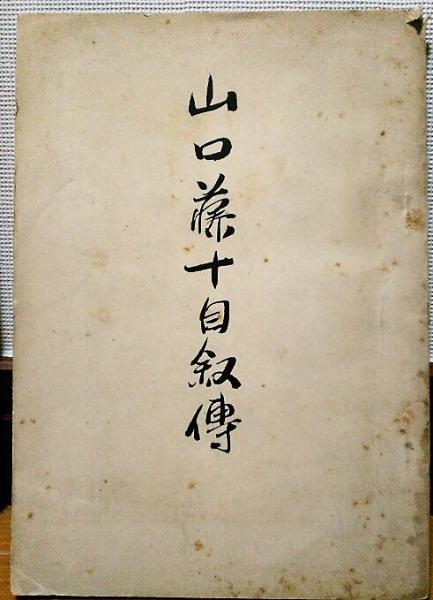 山口藤十自叙傳